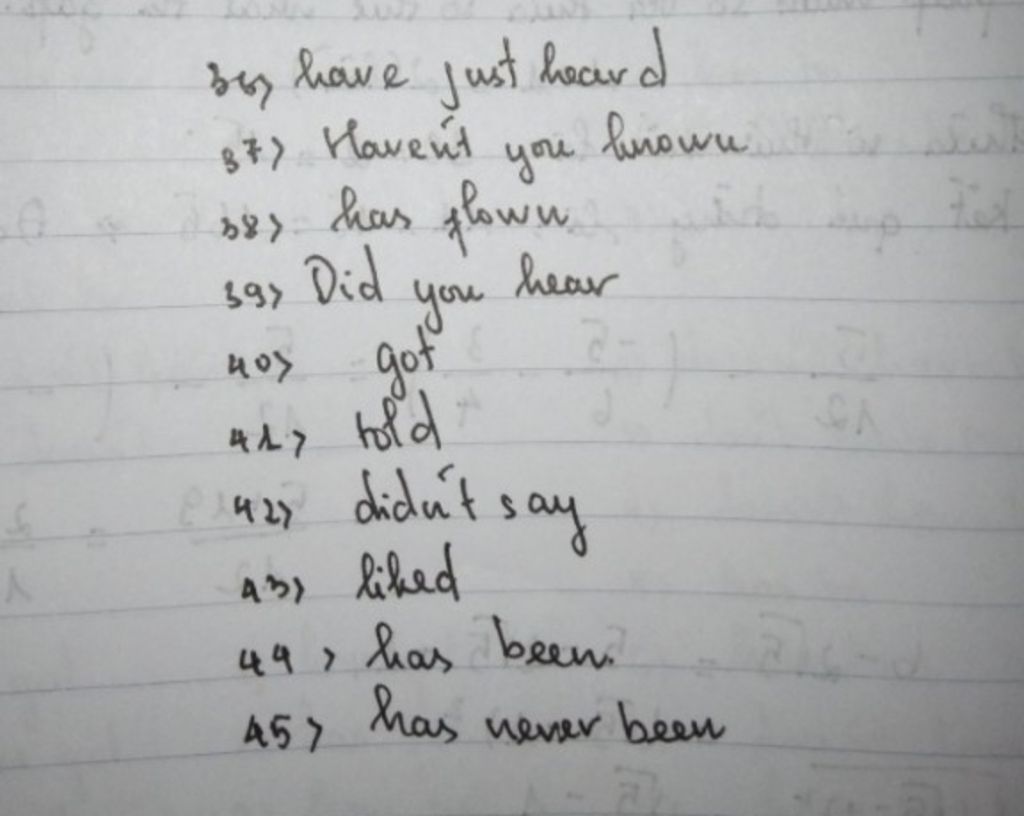 36> have just heard
37> Haven't you known
38> has flown
39> Did you hear
40> got
41> told
42> didn't say
43> liked
44> has been.
45> has never been